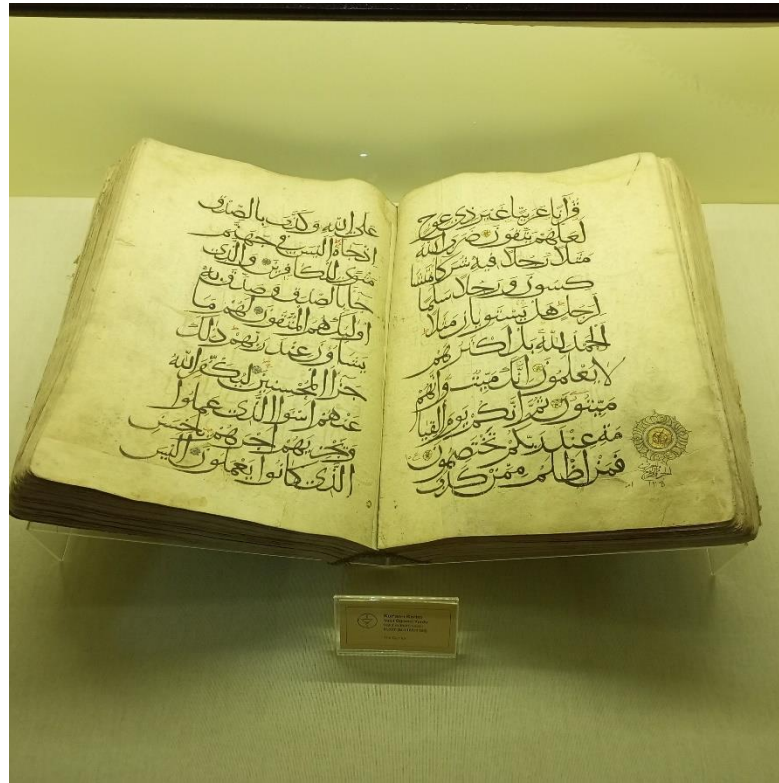 قرآنا عربيا غير ذي عوج
لعلهم يتقون ضرب الله
مثلا رجلا فيه شركا متشا
كسون ورجلا سلما
لرجل هل يستويان مثلا
الحمد لله بل اكثرهم
لا يعلمون انك ميت وانهم
ميتون ثم انكم يوم القيا
مة عند ربكم تختصمون
فمن اظلم ممن كذب
على الله وكذب بالصدق
اذ جاه اليس في جهنم
مثوى للكافرين والذي
جا بالصدق وصدق به
اوليك هم المتقون لهم ما
يشاون عند ربهم ذلك
جزا المحسنين ليكفر الله
عنهم اسوا الذي عملوا
ويجزيهم اجرهم باحسن
الذي كانوا يعملون اليس